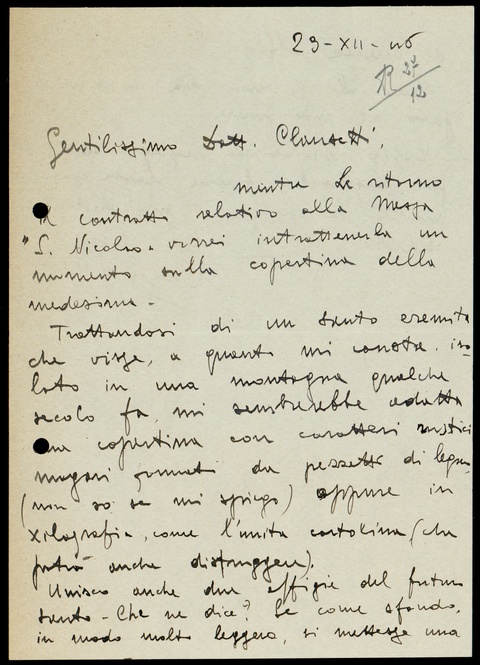 23-XII-46
R 27/12
Gentilissimo Dott. Clausetti,
mentre Le ritorno
il contratto relativo alla Messa
"S. Nicolao" vorrei intrattenerla un
momento sulla copertina della
medesima -
Trattandosi di un santo eremita
che visse, a quanto mi consta, iso-
lato in una montagna qualche
secolo fa, mi sembrerebbe adatta
una copertina con caratteri rustici
magari formati da pezzetti di legno
(non so se mi spiego) oppure in
xilografia, come l'unita cartolina (che
potrà anche distruggere).
Unisco anche due effigie del futuro
santo - Che ne dice? Se come sfondo,
in modo molto leggero, si mettesse una